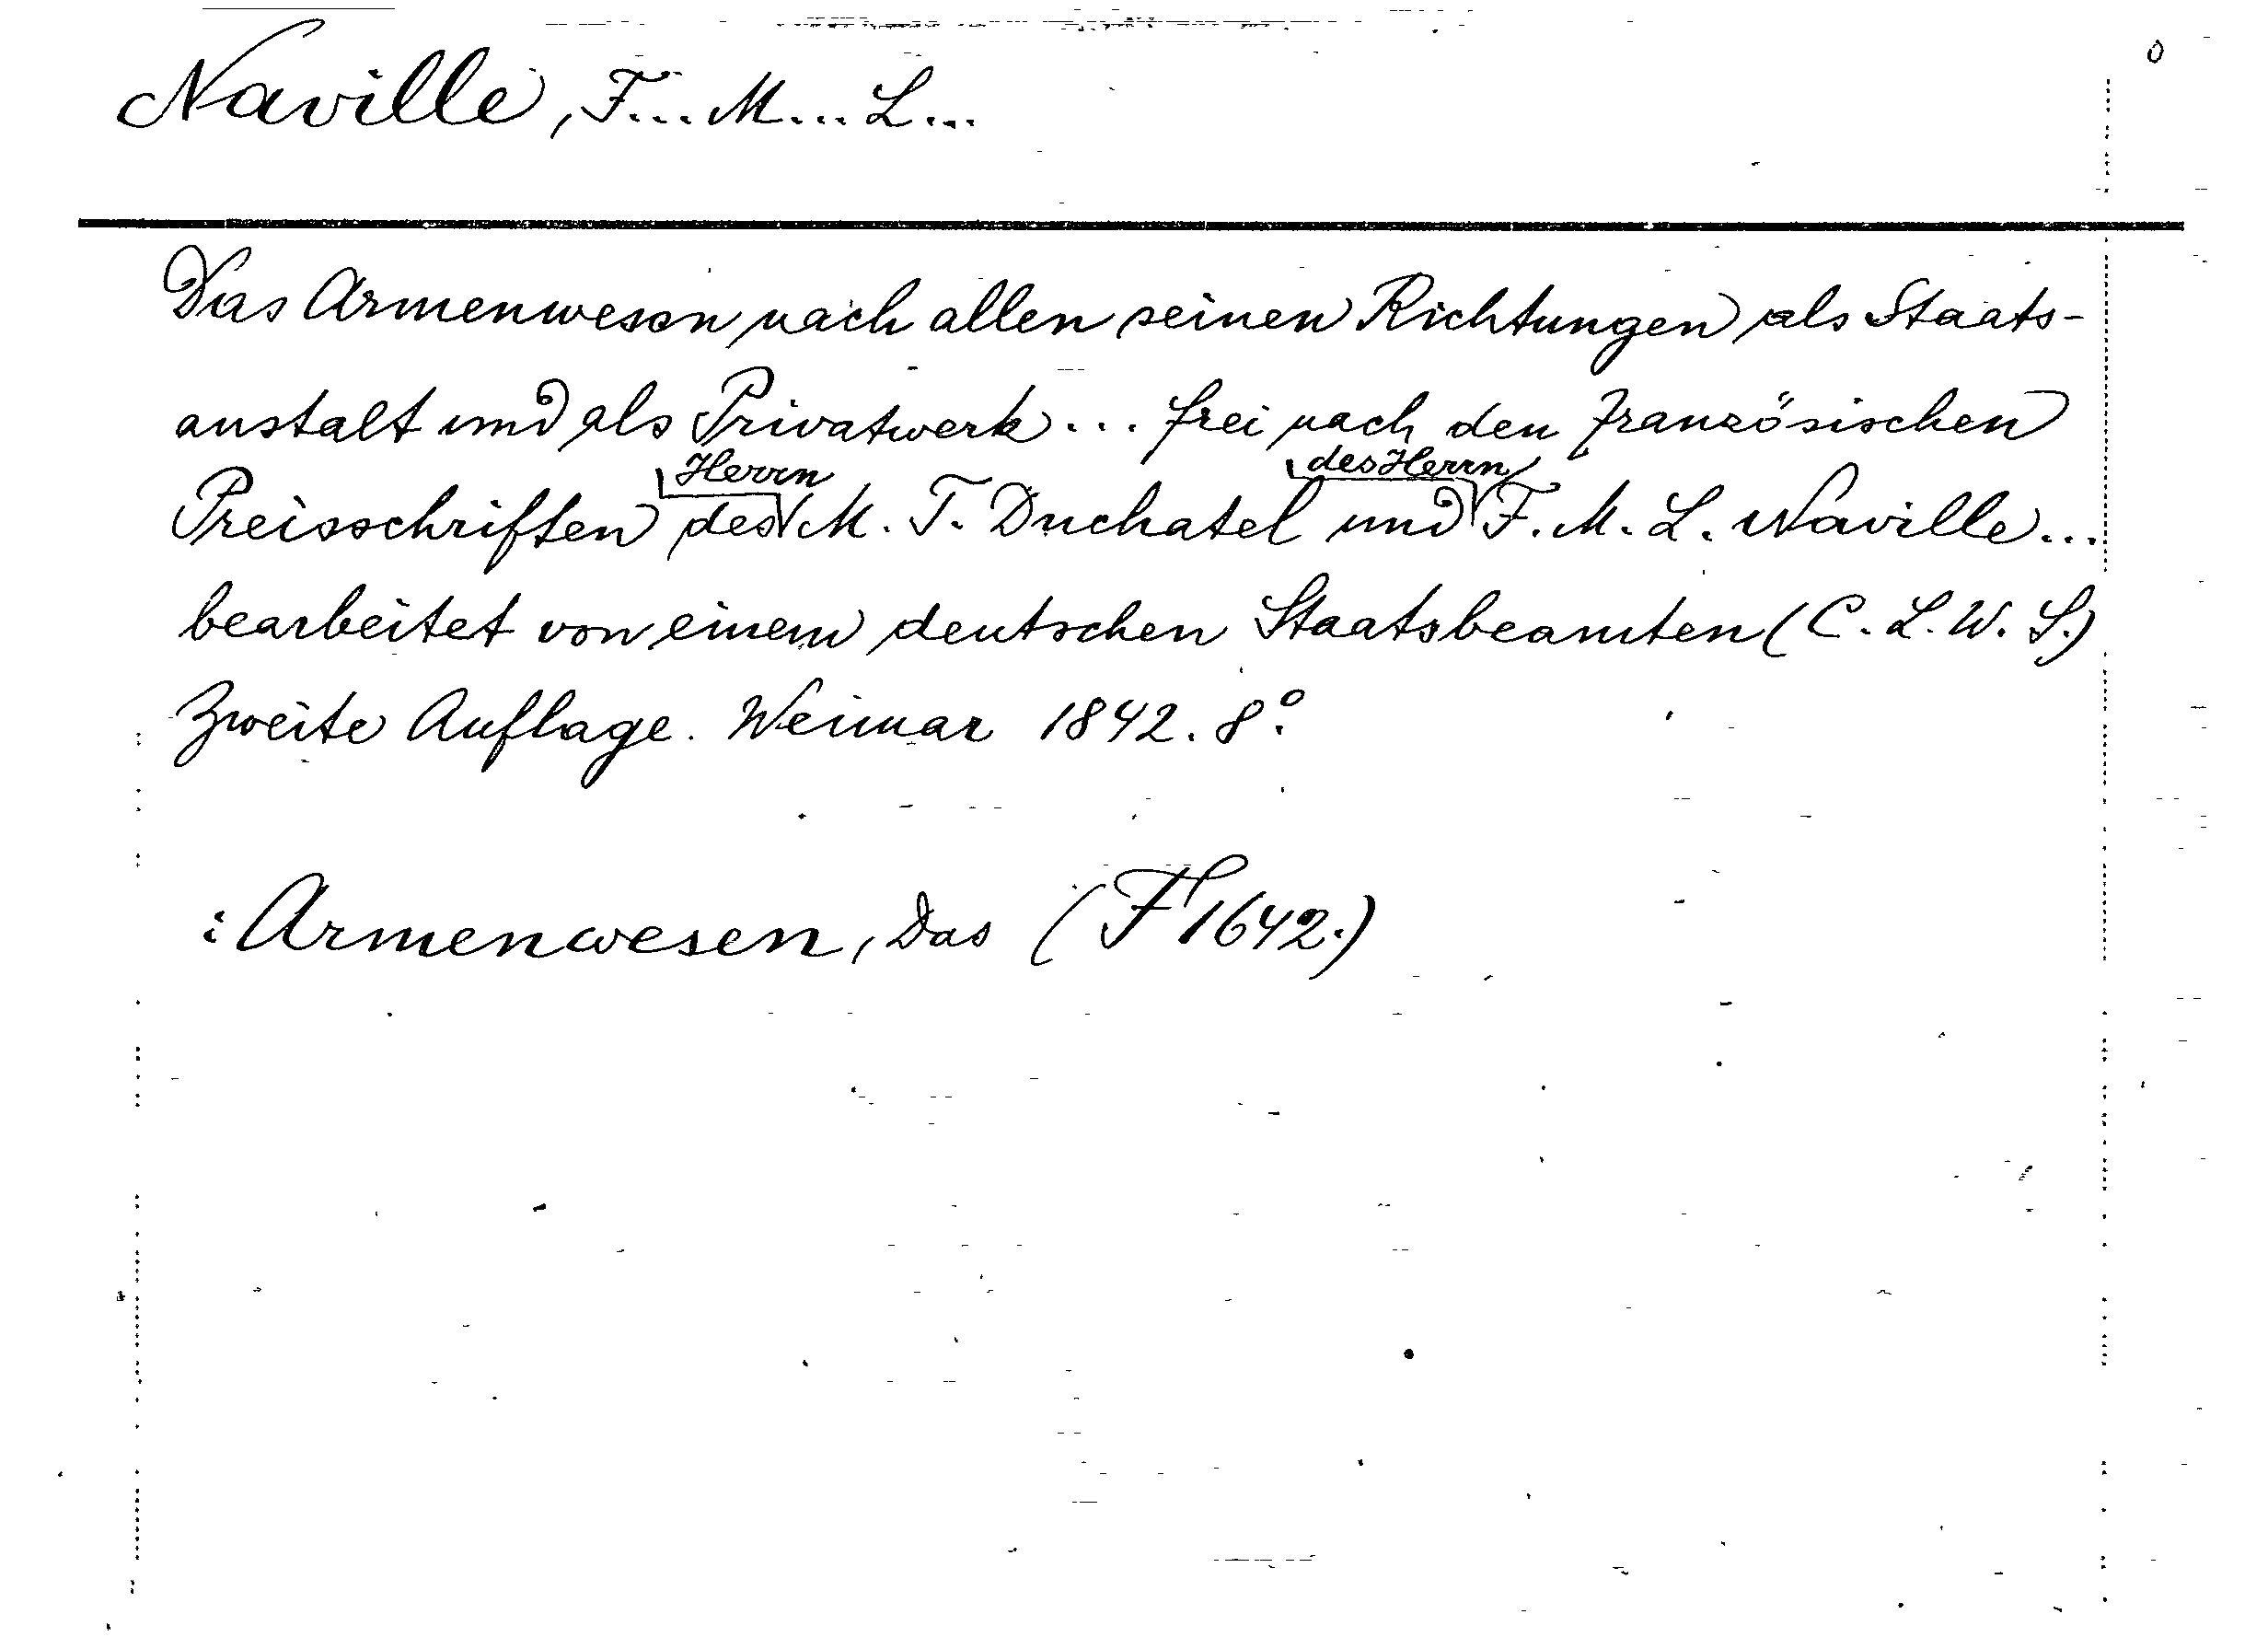 Naville, F... M... L...
Das Armenwesen nach allen seinen Richtungen als Staats-
anstalt und als Privatwerk... frei nach den französischen
Preisschriften des Herrn M. T. Duchatel und des Herrn F. M. L. Naville...
bearbeitet von einem deutschen Staatsbeamten (C. L. W. S.)
Zweite Auflage. Weimar 1842. 8º.
: Armenwesen, Das (F 1642.)